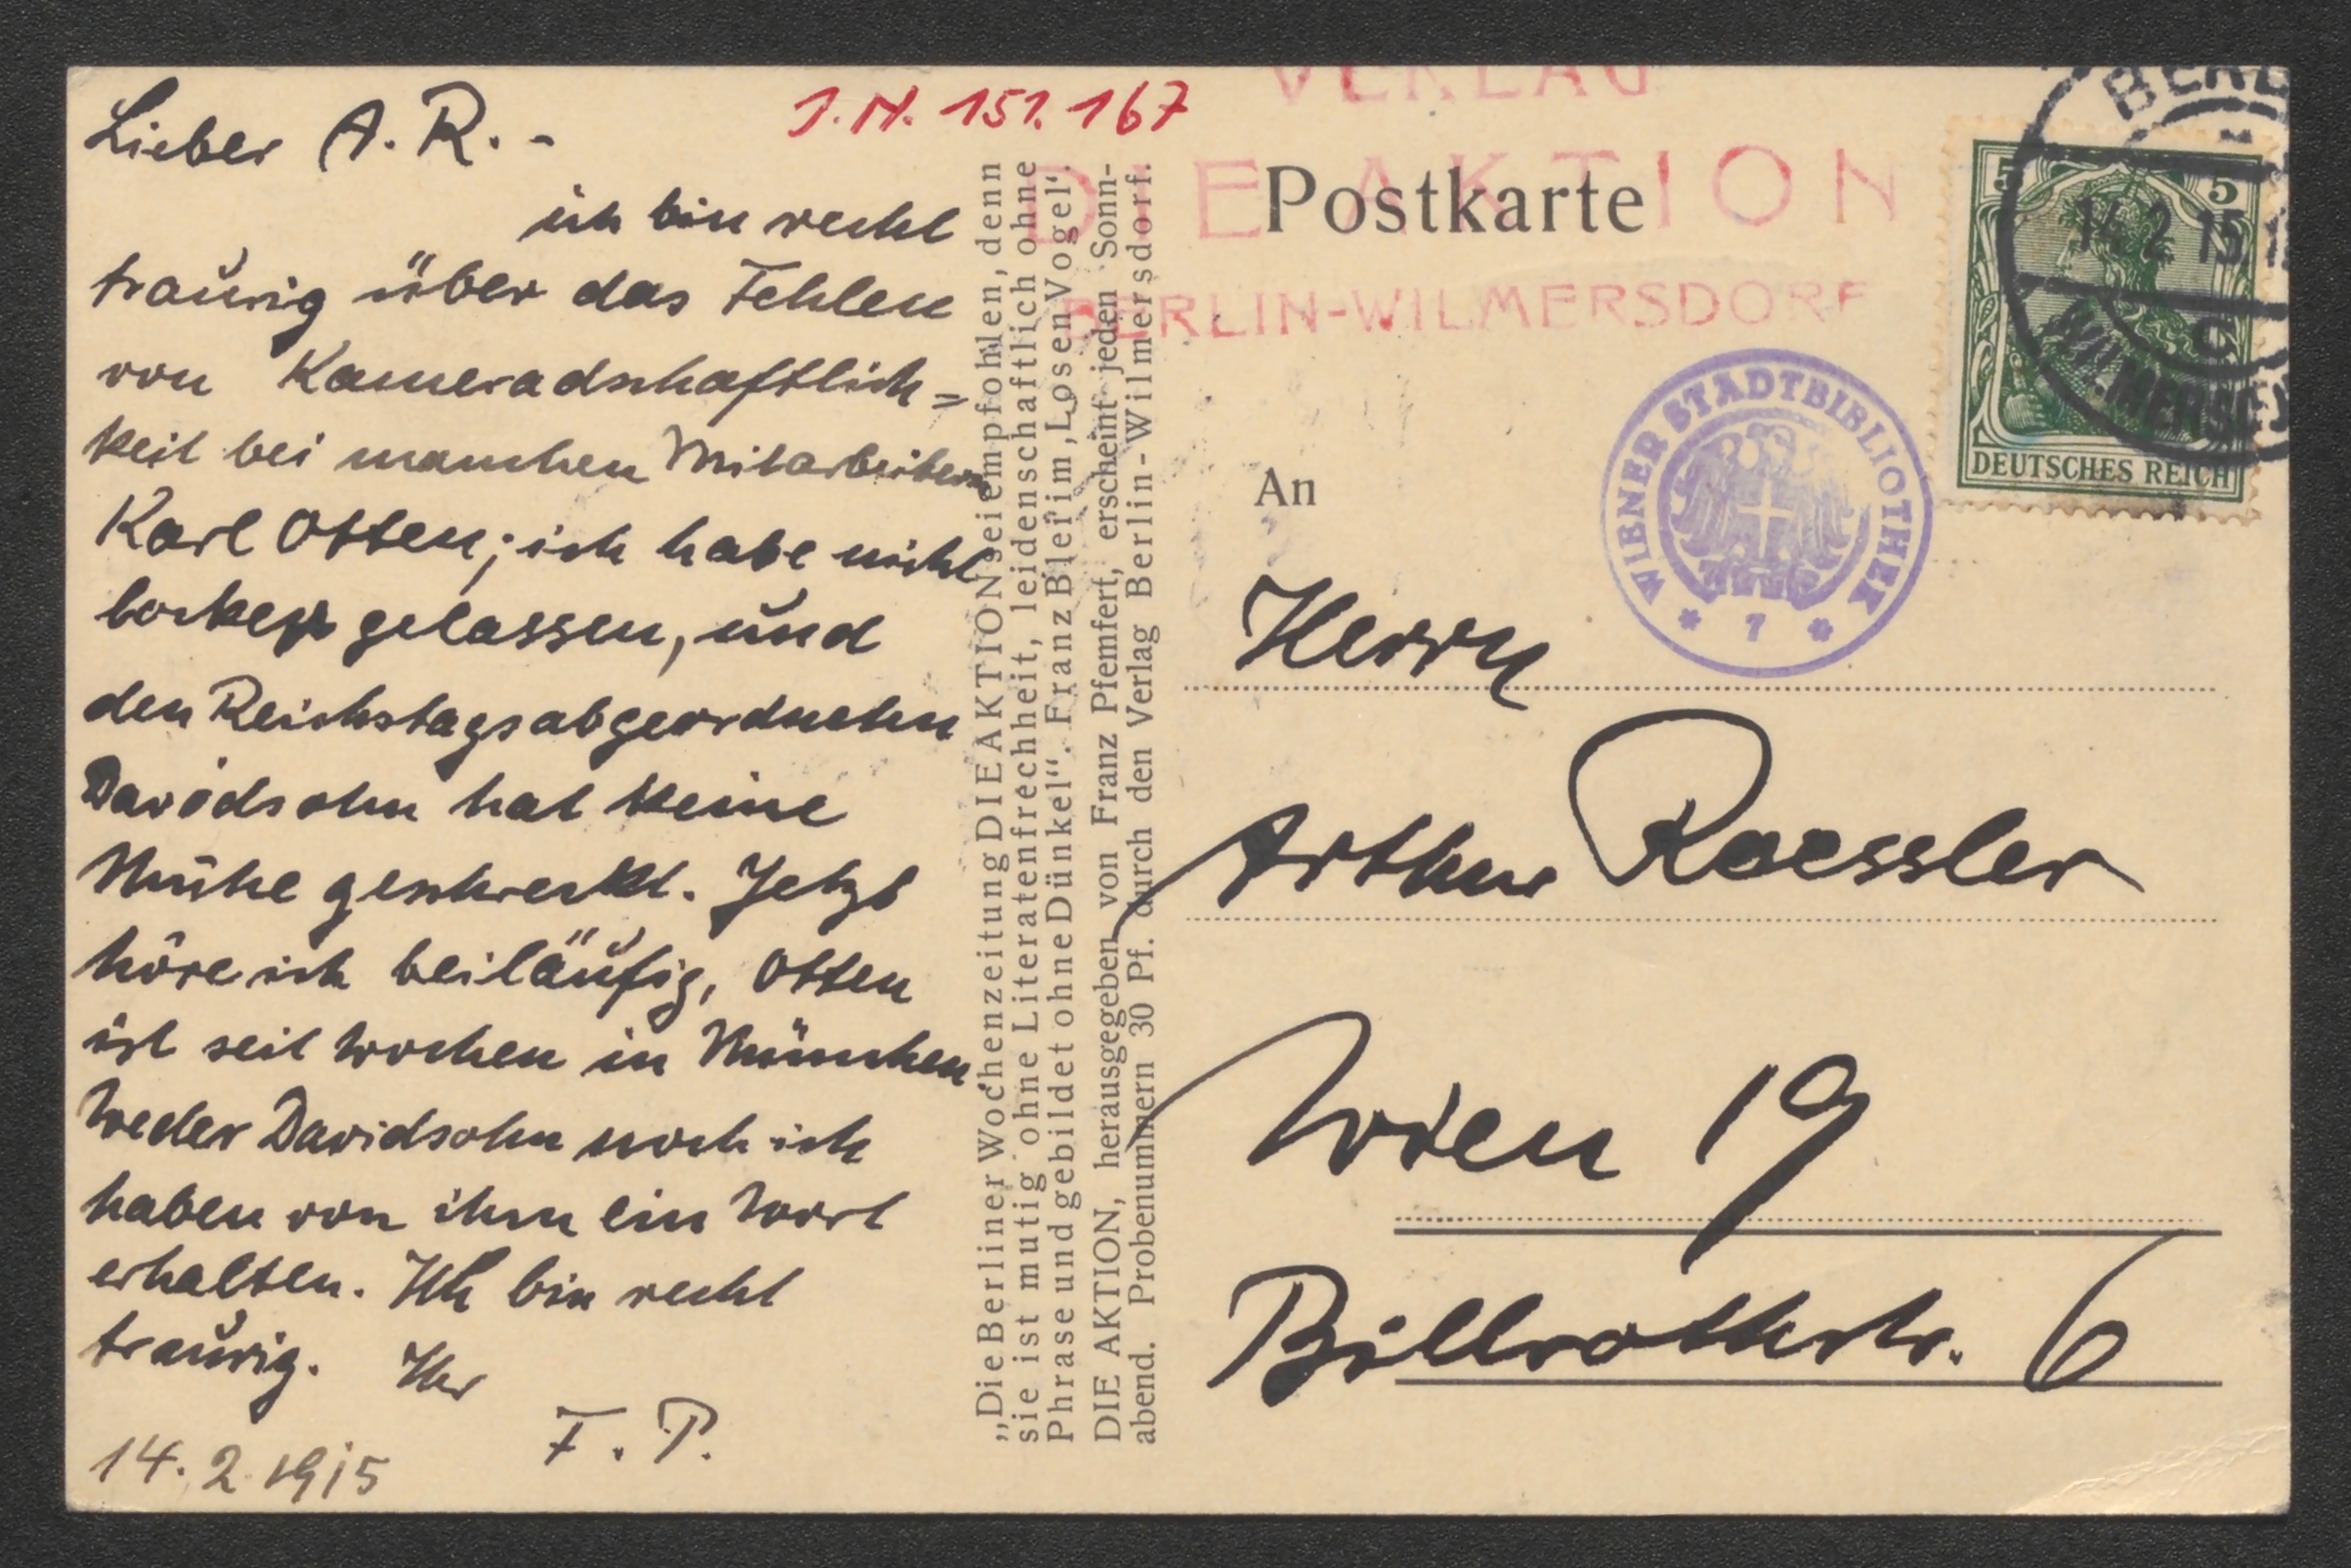 Lieber A. R. -
ich bin recht
traurig über das Fehlen
von Kameradschaftlich=
keit bei manchen Mitarbeitern
Karl Otten; ich habe nicht
locker gelassen, und
den Reichstagsabgeordneten
Davidsohn hat keine
Mühe geschreckt. Jetzt
höre ich beiläufig, Otten
ist seit Wochen in München.
Weder Davidsohn noch ich
haben von ihm ein Wort
erhalten. Ich bin recht
traurig. Ihr
F. P.
14.2.1915
J.N. 151.167
„Die Berliner Wochenzeitung DIE AKTION sei empfohlen, denn
sie ist mutig ohne Literatenfrechheit, leidenschaftlich ohne
Phrase und gebildet ohne Dünkel“. Franz Blei im ‚Losen Vogel‘.
DIE AKTION, herausgegeben von Franz Pfemfert, erscheint jeden Sonn-
abend. Probenummern 30 Pf. durch den Verlag Berlin-Wilmersdorf.
VERLAG
DIE AKTION
BERLIN-WILMERSDORF
Postkarte
An
WIENER STADTBIBLIOTHEK
* 7 *
5 5
DEUTSCHES REICH
14.2.15
Herrn
Arthur Roessler
Wien 19
Billrothstr. 6